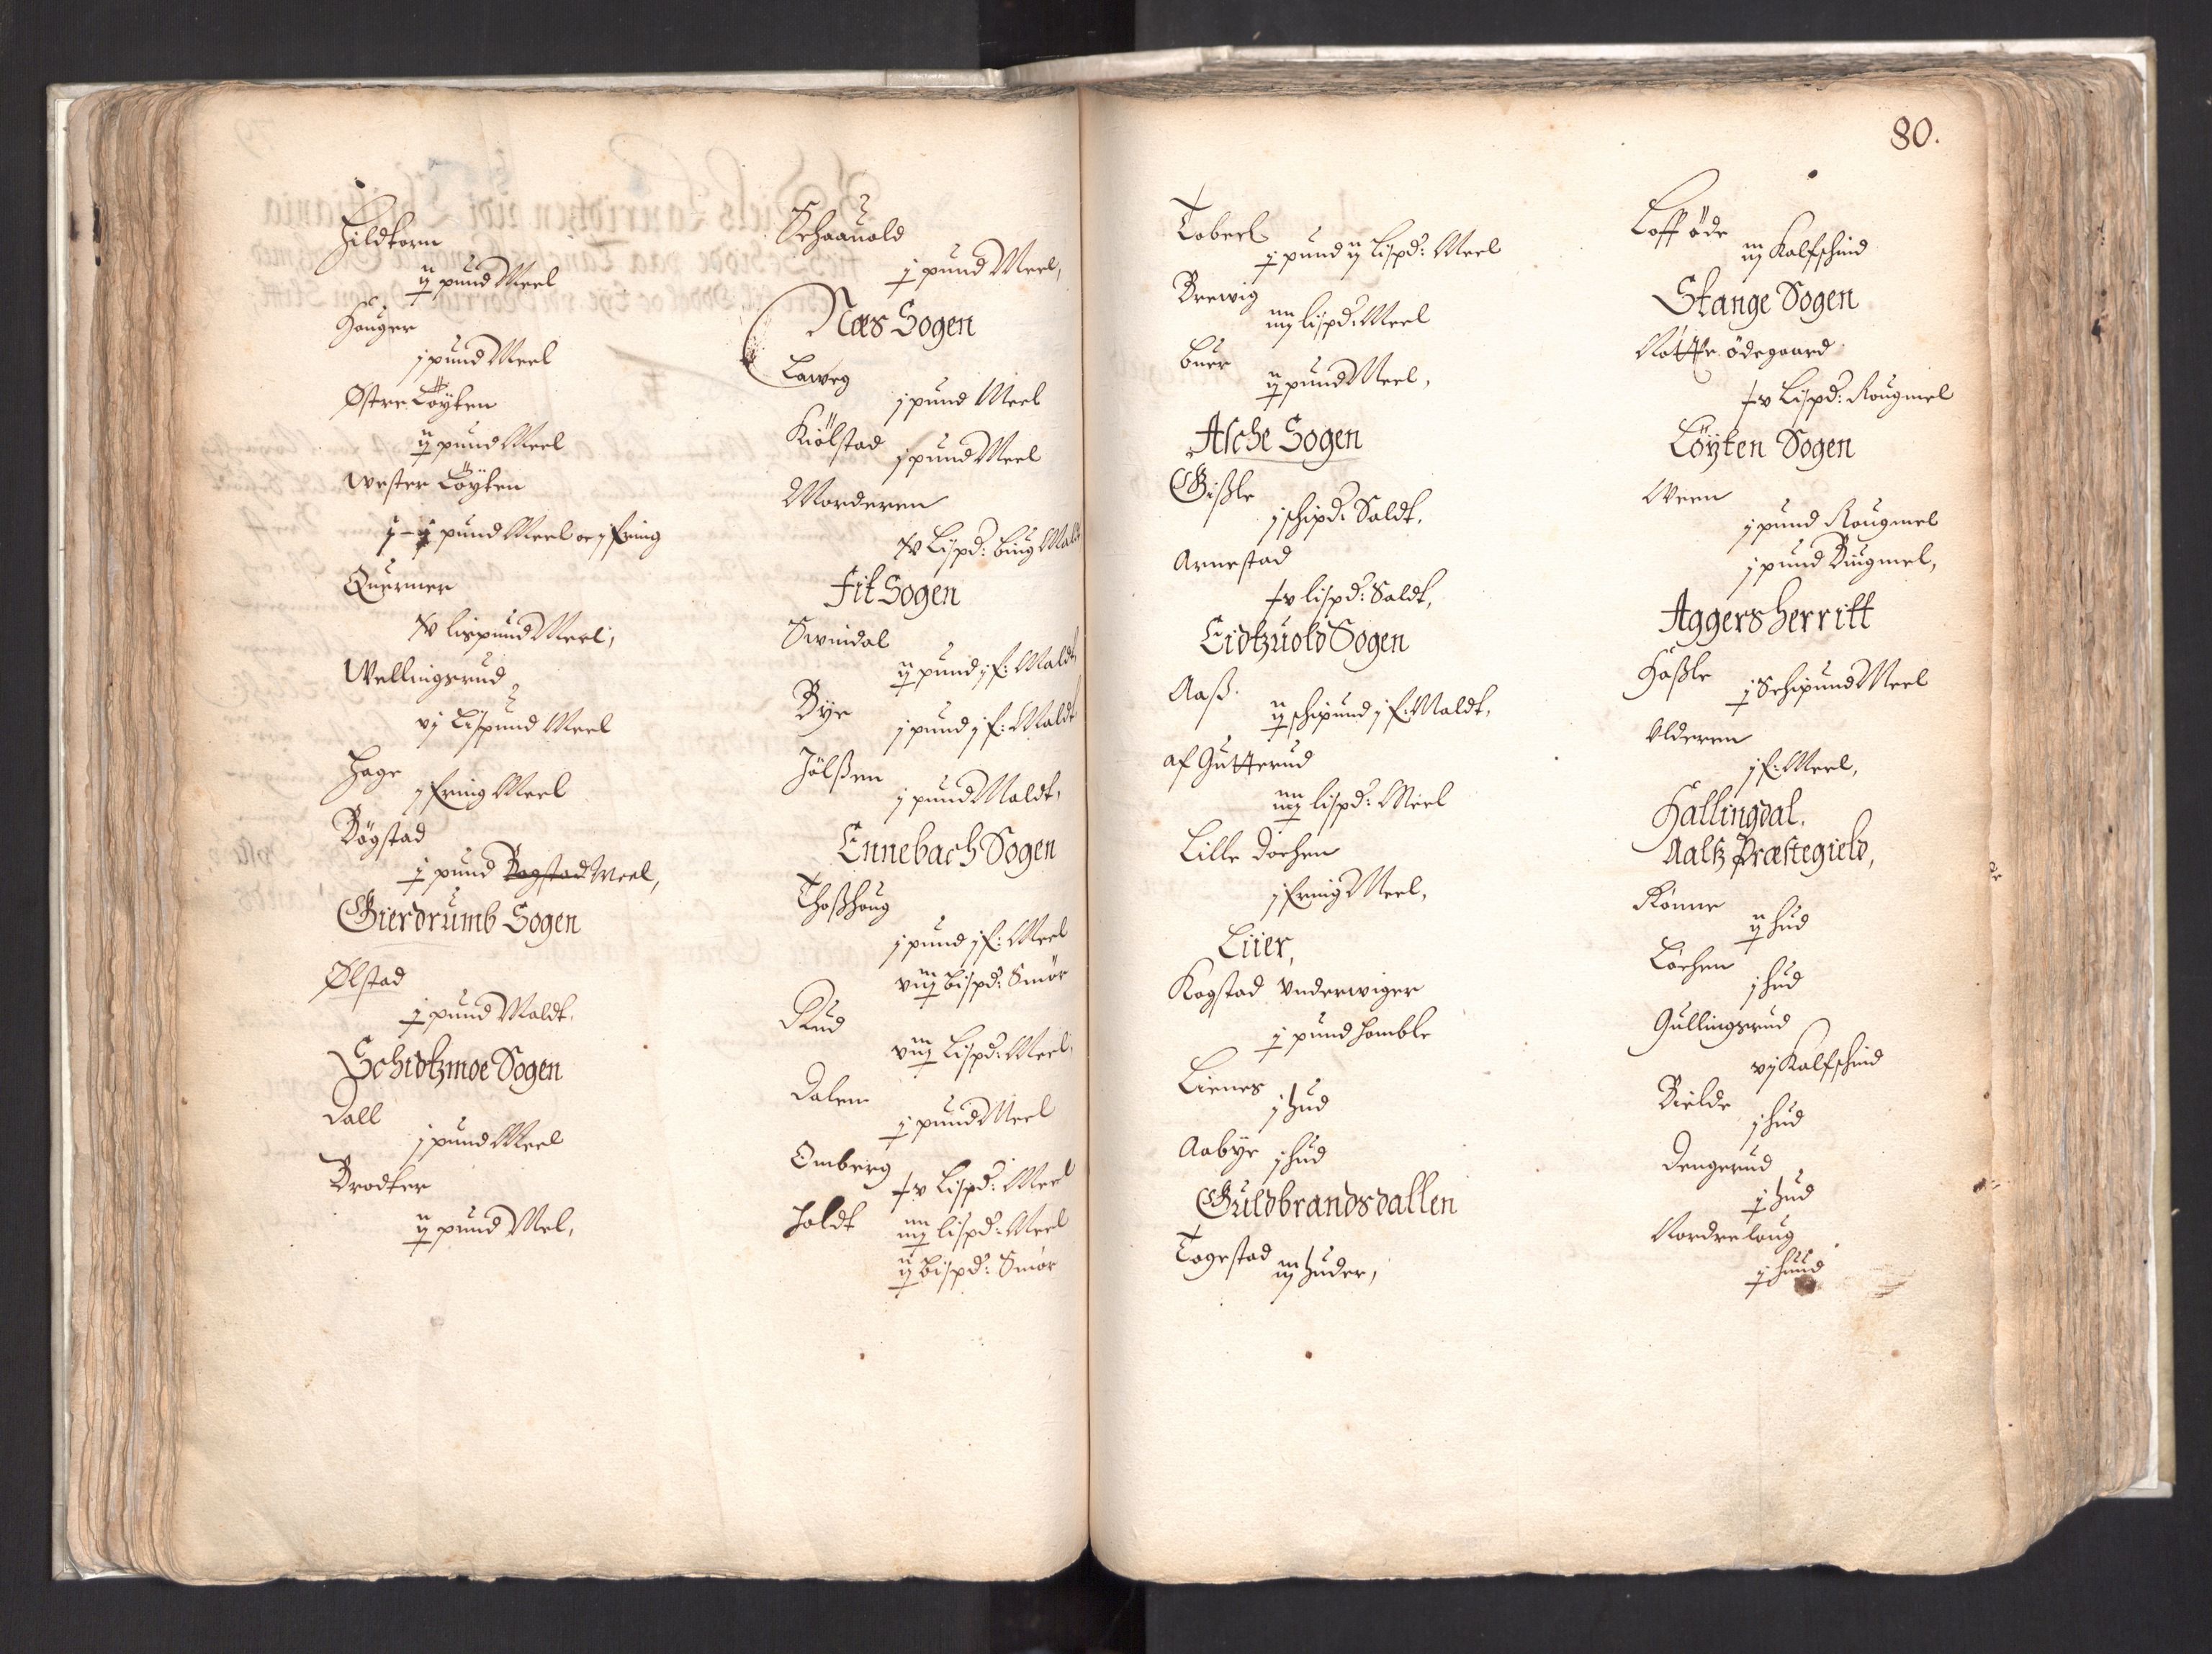 Hildtorn
ij pund Meel
Houger
j pund Meel
Østre Löÿten
ij pund Meel
Wester Löÿten
pund Meel oc j fring
Quermer
xv lispund Meel,
Wellingsrud
vj Lispund Meel
Hage
j fring Meel
Bögstad
j pund Bogstad Meel,
Gierdrumb Sogen
Ølstad
j pund Maldt.
Schidtzmoe Sogen
Dall
j pund Meel
Brodter
ij pund Mel,
Schaauold
j pund Meel,
Næs Sogen
Laweg
j pund Meel
Kiölstad
j pund Meel
Morderen
xv Lispd: biug Maldt
Fit Sogen
Swindal
ij pund j f: Maldt
Bÿe
j pund j f: Maldt
Jölßen
j pund Maldt,
Ennebach Sogen
Thoßhoug
j pund j f: Meel
viij bispd: Smör
Rud
viij Lispd: Meel,
Dalen
j pund Meel
Omberg
xv Lispd: Meel
Holdt
iiij lispd: Meel
ij bispd: Smör
80.
Toberl
j pund ij lispd: Meel
Brewig
iiij lispd: Meel
Buer
ij pund Meel,
Asche Sogen
Gißle
j schipd: Saldt,
Arnestad
xv lispd: Saldt,
Eidtzuold Sogen
Aaß.
ij schipund j f: Maldt,
af Gutterud
iiij lispd: Meel
Lille Dochen
j fring Meel,
Liier,
Kogstad Underwiger
j pund Homble
Lienes
j Hud
Aabÿe j hud
Guldbrandsdallen
Togestad
iij Huder,
Loff öde
iij Kalfschind
Stange Sogen
Nötte ödegaard
xv Lispd: Rougmel
Löÿten Sogen
Ween
j pund Rougmel
j pund Biugmel,
Aggers herritt
Haßle
j Schipund Meel
Alderen
j f: Meel,
Hallingdal.
Aaltz Præstegield,
Rönne
ij hud
Löchen
j hud
Gullingsrud
vj Kalfschind
Bielde
j hud
Dengerud
j Hud
Nordre loug
j huud